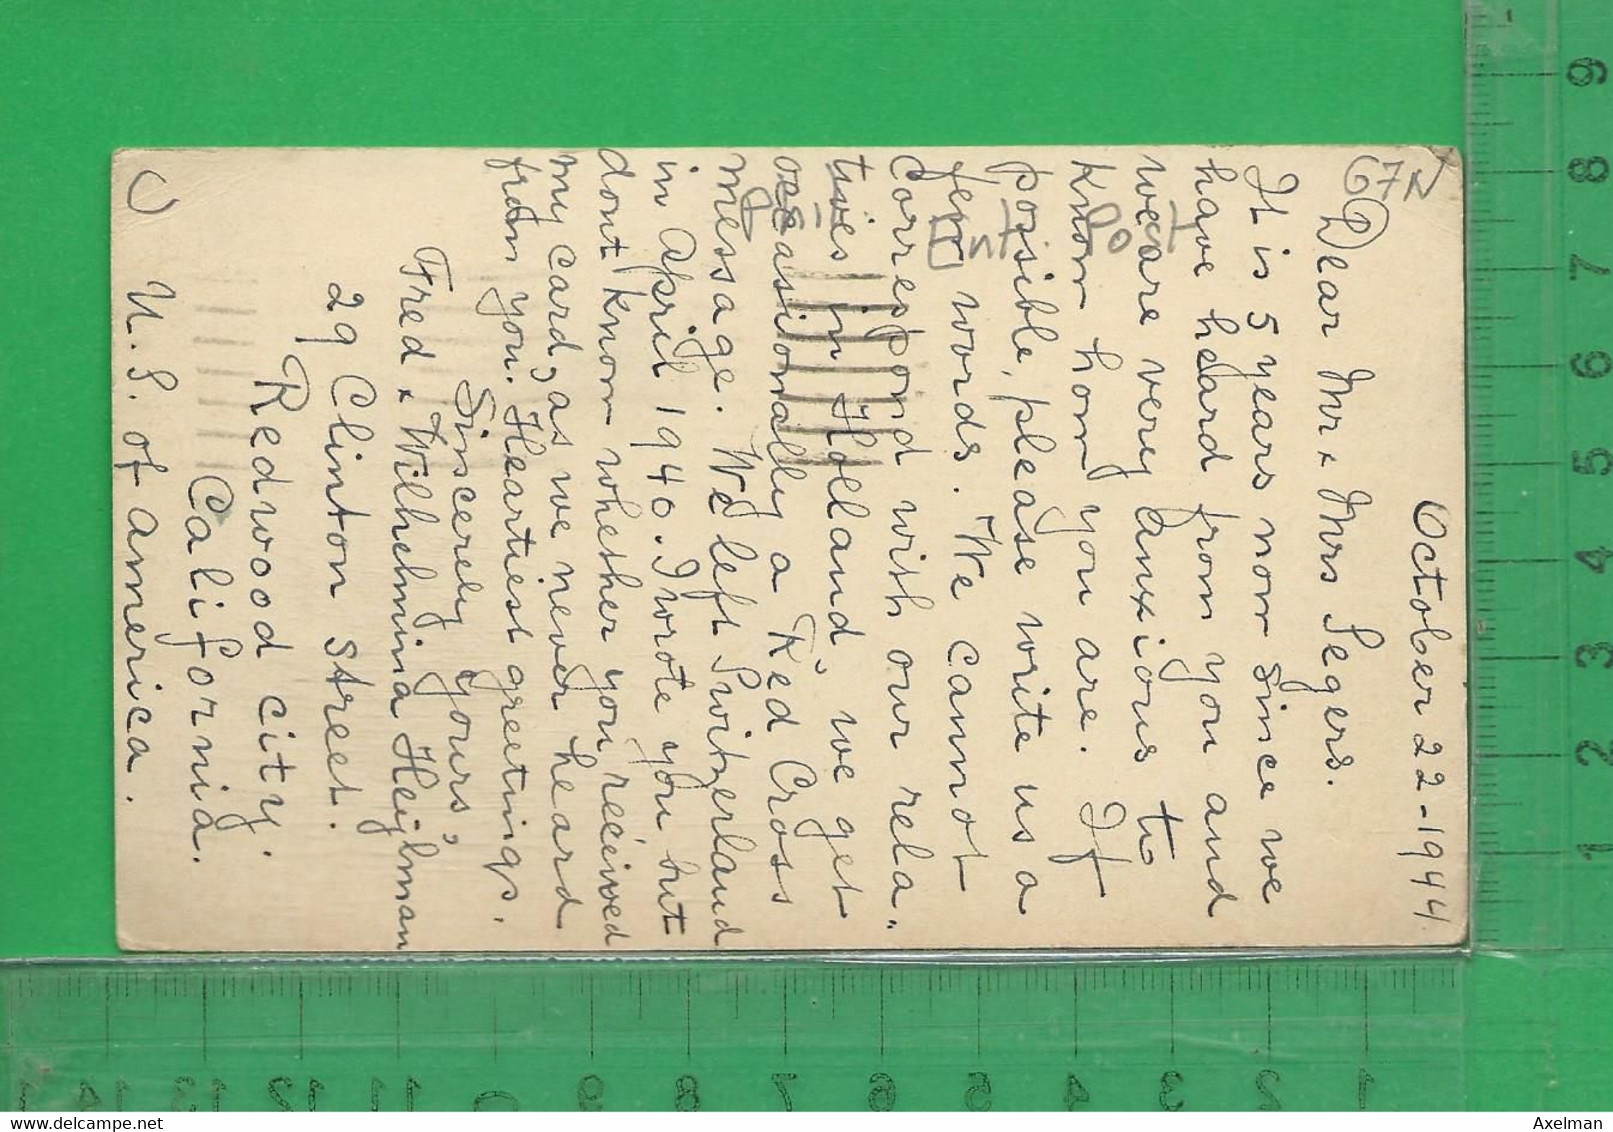 October 22-1944
67N
Dear Mr & Mrs Segers.
It is 5 years now since we
have heard from you and
we are very anxious to
know how you are. If
possible, please write us a
few words. We cannot
correspond with our rela-
tives in Holland we get
occasionally a Red Cross
message. We left Switzerland
in April 1940. I wrote you but
dont know whether you received
my card, as we never heard
from you. Heartiest greetings.
Sincerely yours,
Fred & Wilhelmina Heijlman
29 Clinton street.
Redwood city.
California.
U.S. of america.
1 2 3 4 5 6 7 8 9
1 2 3 4 5 6 7 8 9 10 11 12 13 14
delcampe.net
Axelman